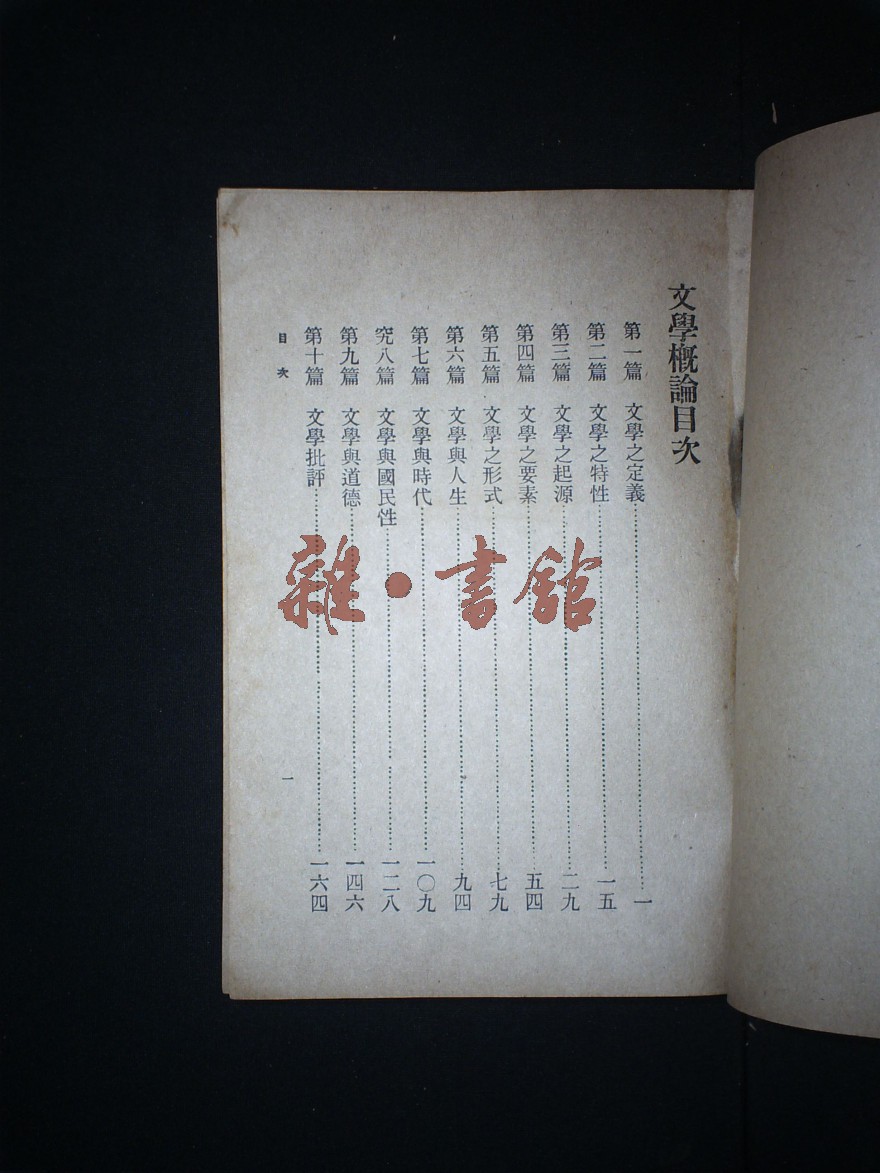 文學概論目次
第一篇　文學之定義……一
第二篇　文學之特性……一五
第三篇　文學之起源……二九
第四篇　文學之要素……五四
第五篇　文學之形式……七九
第六篇　文學與人生……九四
第七篇　文學與時代……一〇九
究八篇　文學與國民性……一二八
第九篇　文學與道德……一四六
第十篇　文學批評……一六四
目次
一
雜·書館